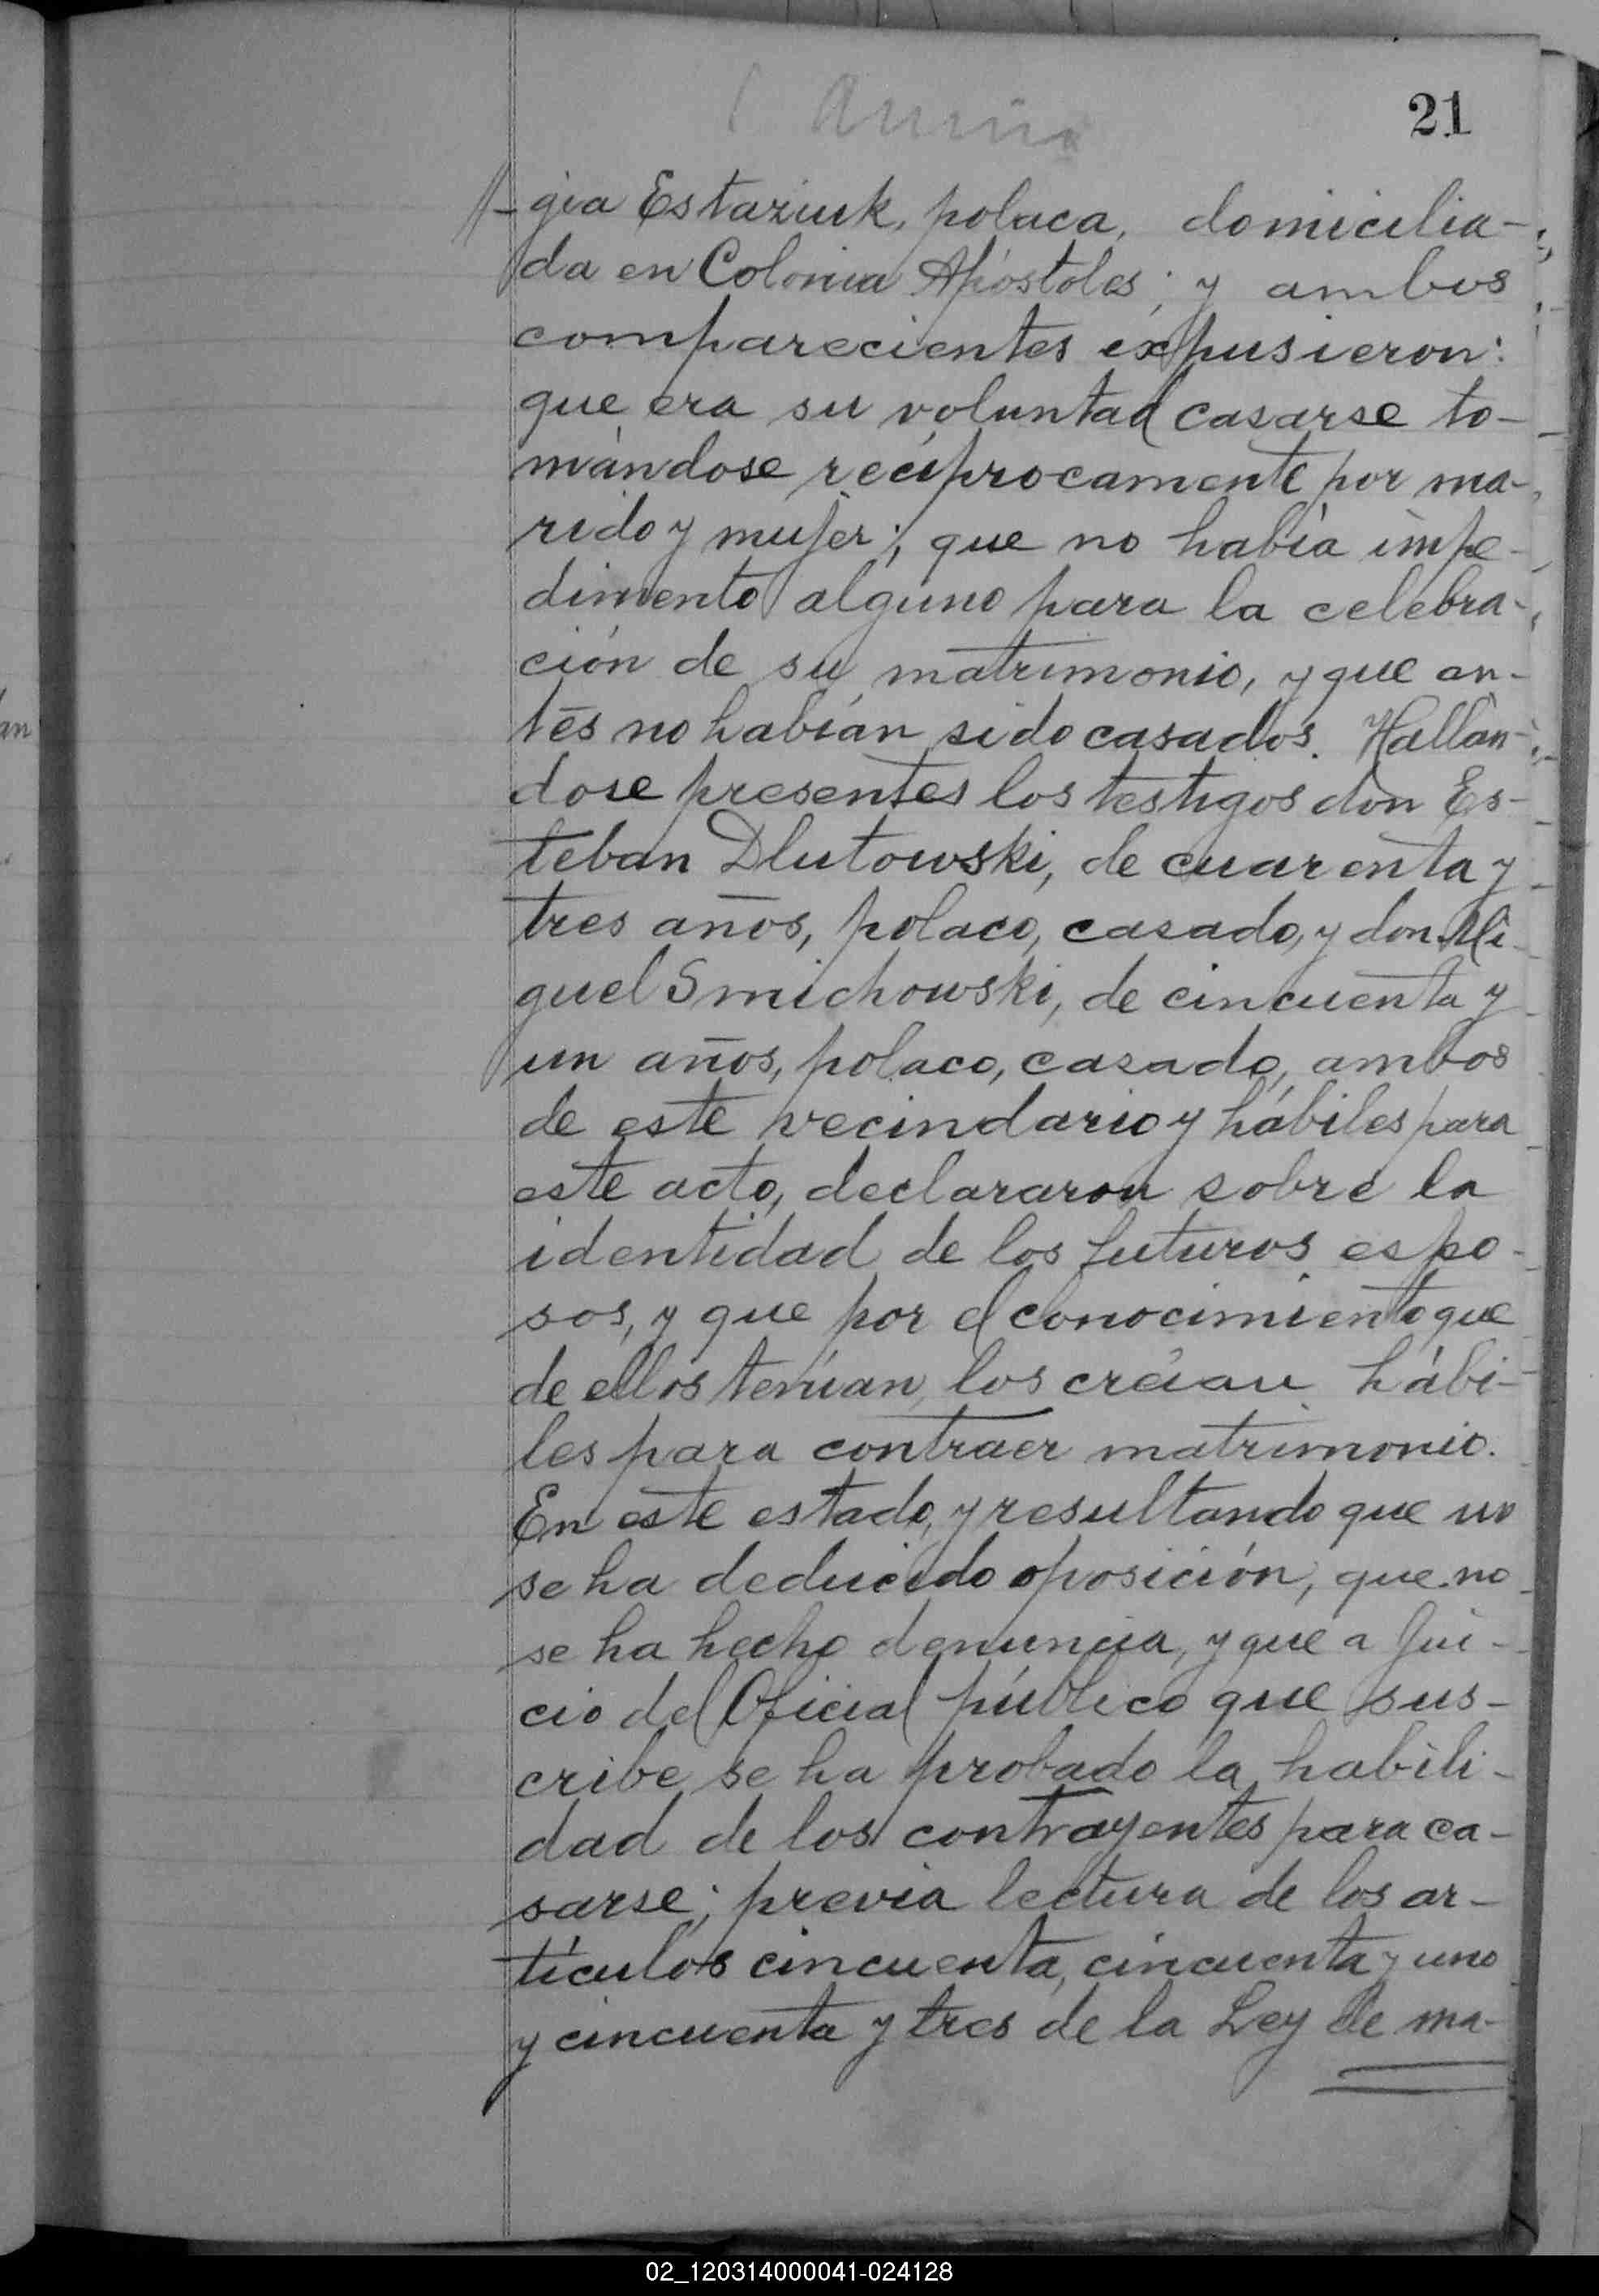 21
-gia Estaziuk, polaca, domicilia-
da en Colonia Apóstoles; y ambos
comparecientes expusieron:
que era su voluntad casarse to-
mándose recíprocamente por ma-
rido y mujer; que no había impe-
dimento alguno para la celebra-
ción de su matrimonio, y que an-
tes no habían sido casados. Hallán-
dose presentes los testigos don Es-
teban Dlutowski, de cuarenta y
tres años, polaco, casado, y don Mi-
guel Smichowski, de cincuenta y
un años, polaco, casado, ambos
de este vecindario y hábiles para
este acto, declararon sobre la
identidad de los futuros espo-
sos, y que por el conocimiento que
de ellos tenían, los creían hábi-
les para contraer matrimonio.
En este estado, y resultando que no
se ha deducido oposición, que no
se ha hecho denuncia, y que a jui-
cio del Oficial público que sus-
cribe se ha probado la habili-
dad de los contrayentes para ca-
sarse; previa lectura de los ar-
tículos cincuenta, cincuenta y uno
y cincuenta y tres de la Ley de ma-
02_120314000041-024128